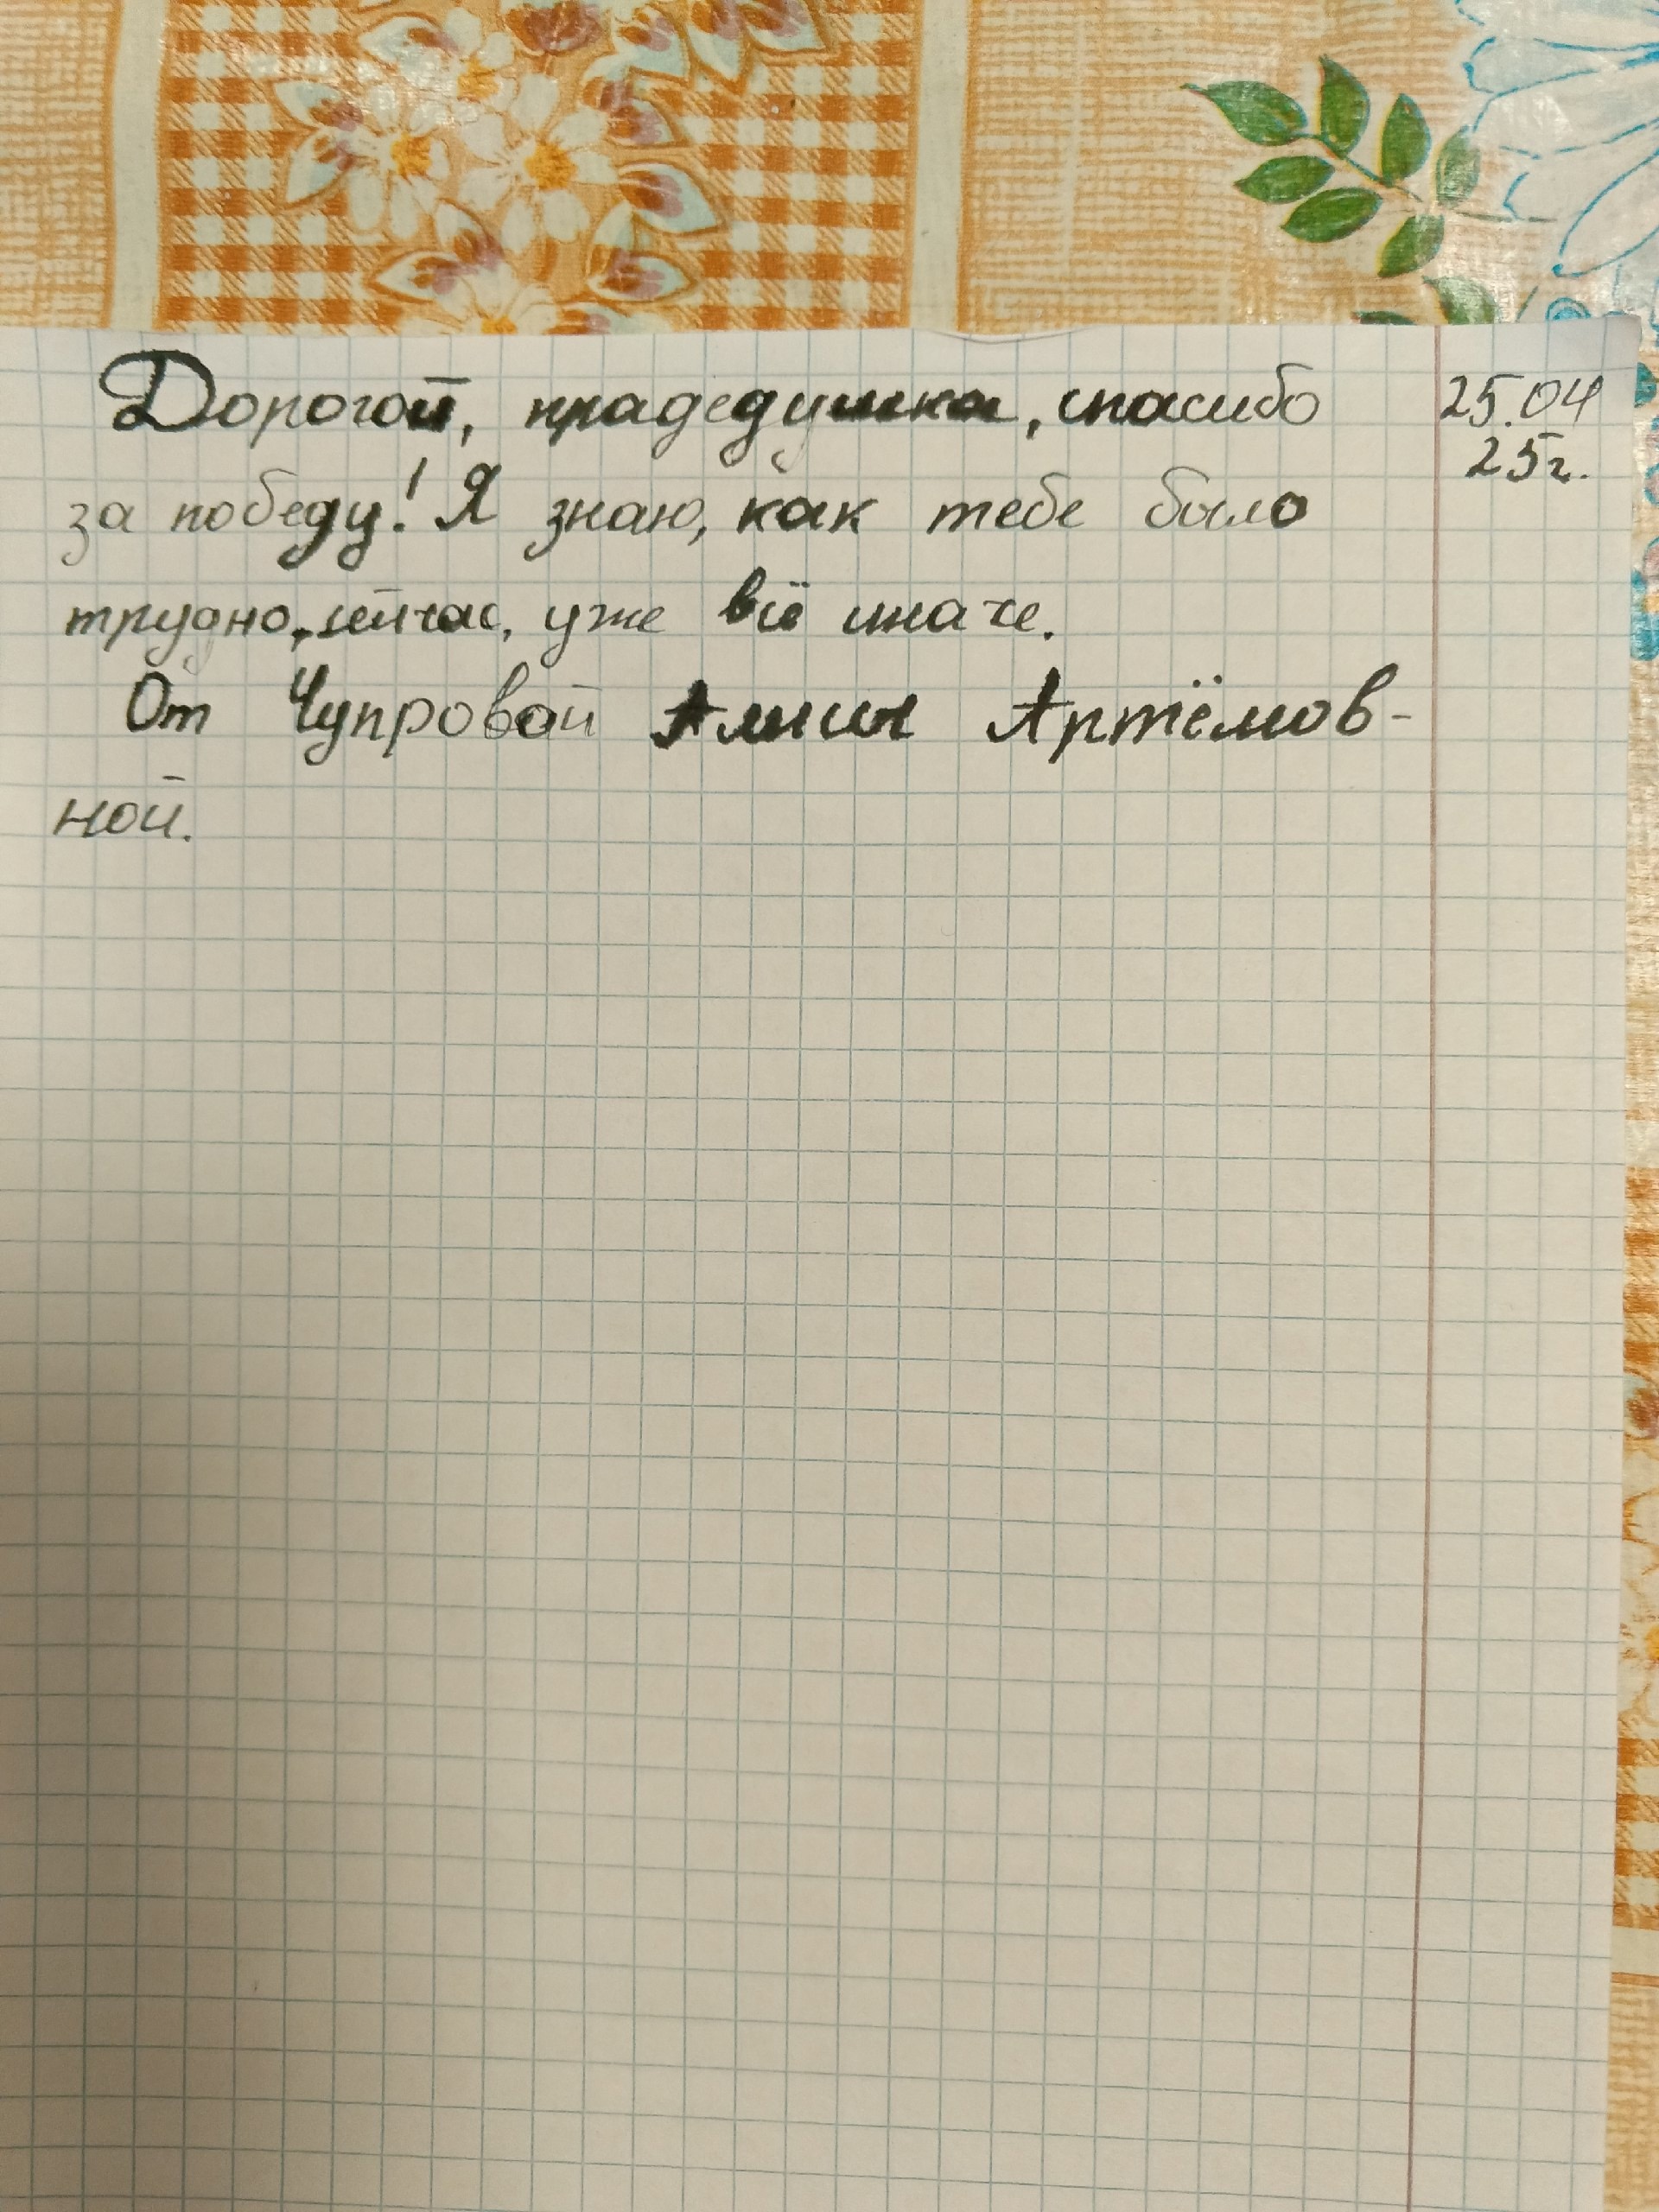 Дорогой, прадедушка, спасибо
25.04
25г.
за победу! Я знаю, как тебе было
трудно, сейчас, уже всё иначе.
От Чупровой Алисы Артёмов-
ной.